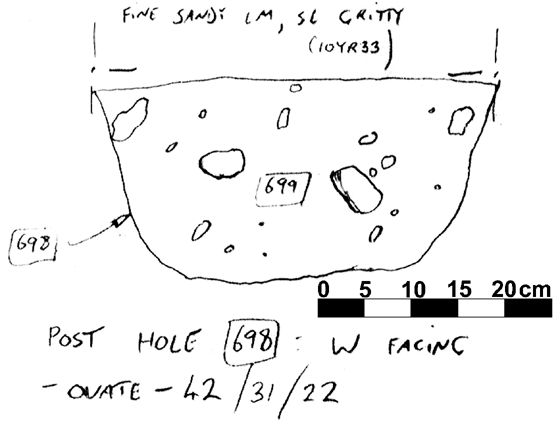 FINE SANDY LM, SL GRITTY
(10YR33)
699
698
0 5 10 15 20cm
POST HOLE 698 : W FACING
- OVATE - 42/31/22